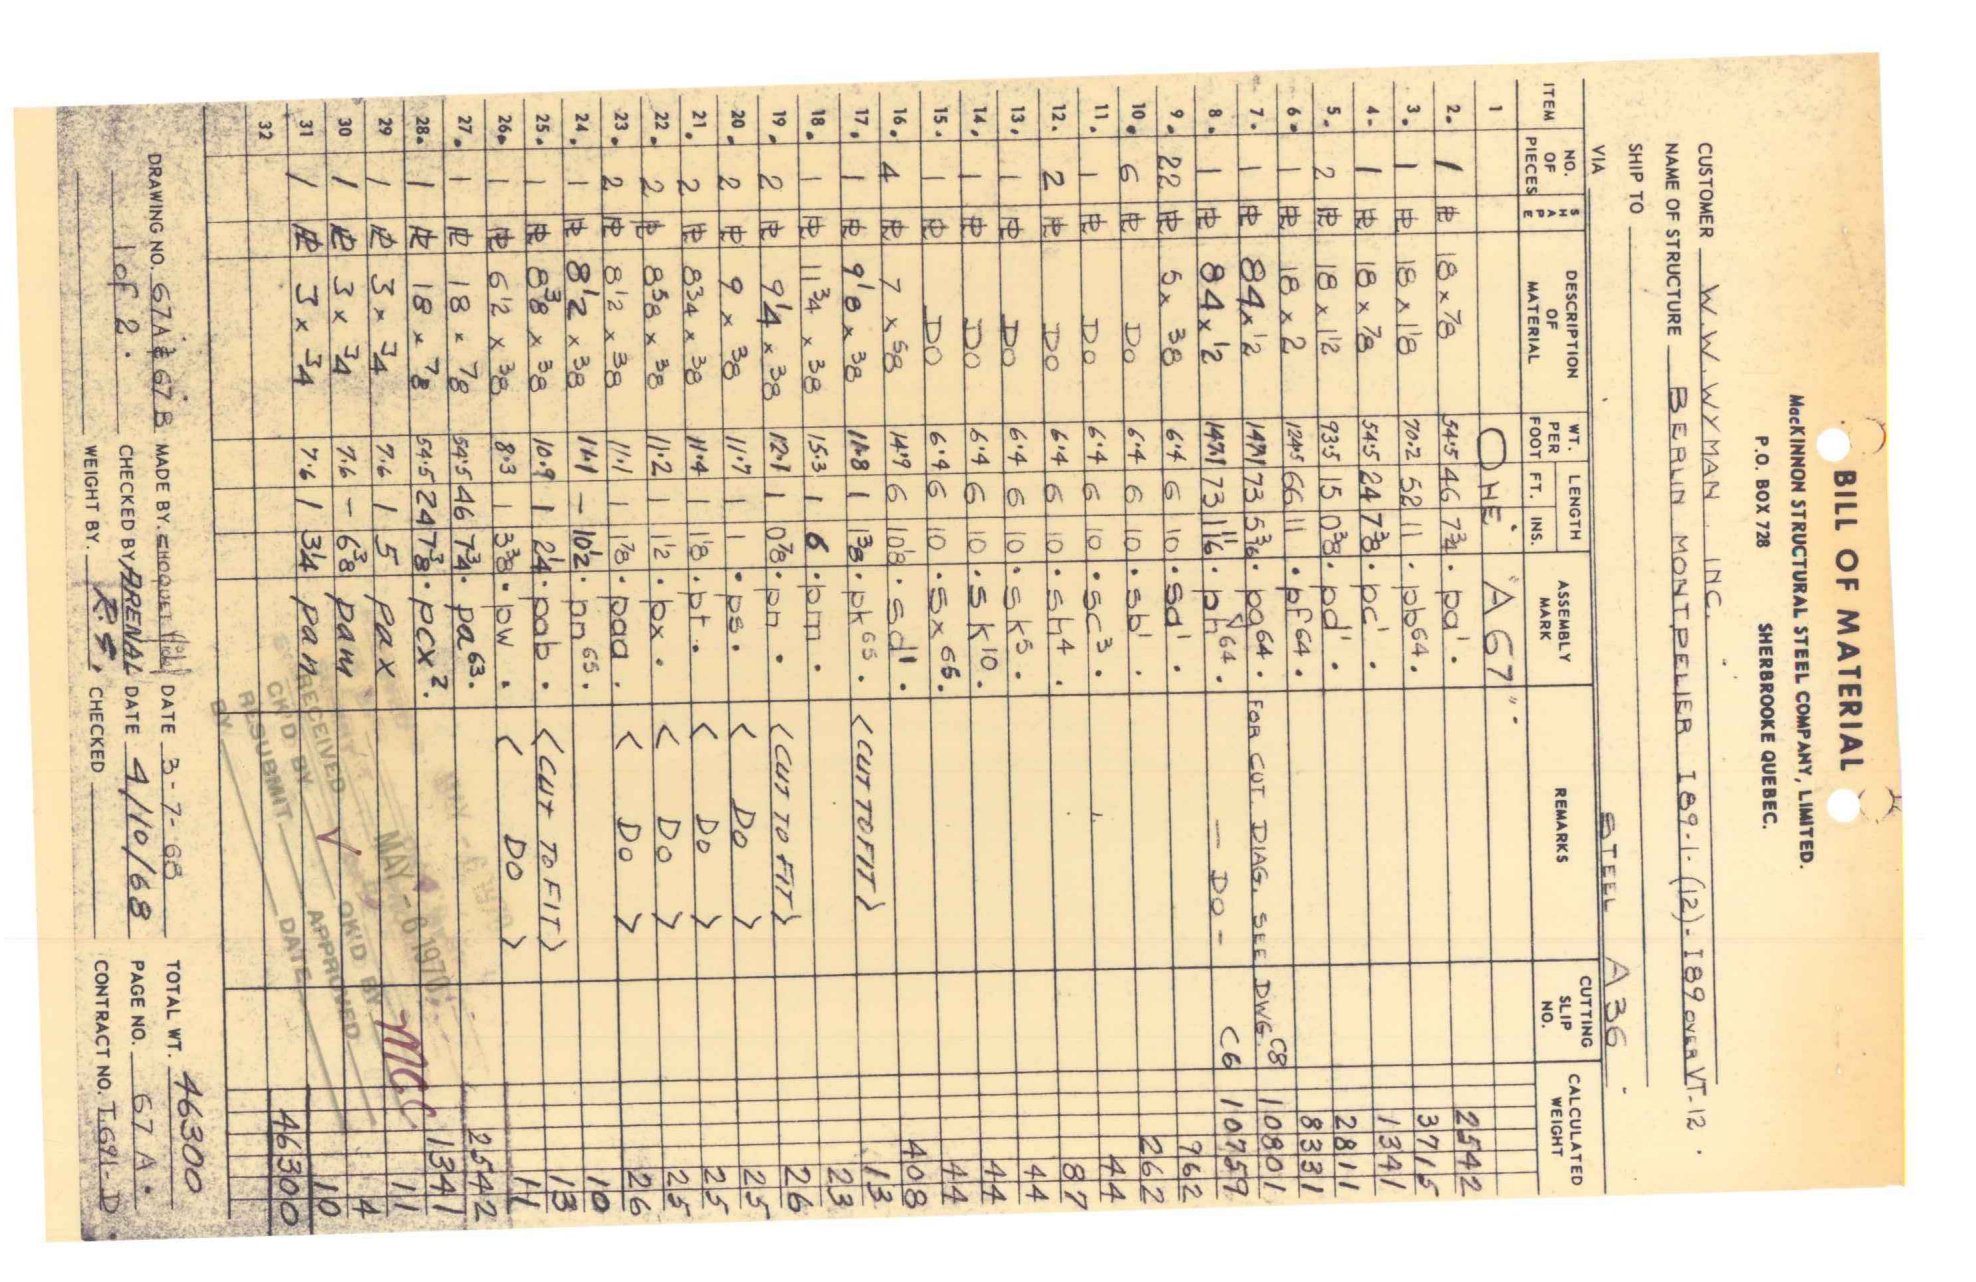 BILL OF MATERIAL
MacKINNON STRUCTURAL STEEL COMPANY, LIMITED.
P.O. BOX 728 SHERBROOKE QUEBEC.
CUSTOMER W.W. WYMAN INC.
NAME OF STRUCTURE BERLIN MONTPELIER I89-1-(12)- I89 OVER VT-12.
SHIP TO
VIA STEEL A36.
ITEM NO. OF PIECES SHAPE DESCRIPTION OF MATERIAL WT. PER FOOT LENGTH FT. INS. ASSEMBLY MARK REMARKS CUTTING SLIP NO. CALCULATED WEIGHT
1 ONE "A67".
2. 1 PL 18 x 7/8 54.5 46 7 3/4 . pa'. 2542
3. 1 PL 18 x 1 1/8 70.2 52 11 . pb64. 3715
4. 1 PL 18 x 7/8 54.5 24 7 3/8 . pc'. 1341
5. 2 PL 18 x 1 1/2 93.5 15 0 3/8 . pd'. 2811
6. 1 PL 18 x 2 124.5 66 11 . pf64. 8331
7. 1 PL 84 x 1/2 147.1 73 5 3/16 . pg64. FOR CUT. DIAG. SEE DWG. C8 10801
8. 1 PL 84 x 1/2 147.1 73 1 11/16 . ph64. — DO — C6 10759
9. 22 PL 5 x 3/8 6.4 6 10 . sa'. 962
10. 6 PL DO 6.4 6 10 . sb'. 262
11. 1 PL DO 6.4 6 10 . sc3. 44
12. 2 PL DO 6.4 6 10 . sh4. 87
13. 1 PL DO 6.4 6 10 . sk5. 44
14. 1 PL DO 6.4 6 10 . sk10. 44
15. 1 PL DO 6.4 6 10 . sx65. 44
16. 4 PL 7 x 5/8 14.9 6 10 1/8 . sd11. 408
17. 1 PL 9 1/8 x 3/8 11.8 1 1 3/8 . pk65. <CUT TO FIT> 13
18. 1 PL 11 3/4 x 3/8 15.3 1 6 . pm. 23
19. 2 PL 9 1/4 x 3/8 12.1 1 0 7/8 . pn. <CUT TO FIT> 26
20. 2 PL 9 x 3/8 11.7 1 1 . ps. < DO > 25
21. 2 PL 8 3/4 x 3/8 11.4 1 1 1/8 . pt. < DO > 25
22. 2 PL 8 5/8 x 3/8 11.2 1 1 1/2 . px. < DO > 25
23. 2 PL 8 1/2 x 3/8 11.1 1 1 7/8 . paa. < DO > 26
24. 1 PL 8 1/2 x 3/8 11.1 - 10 1/2 . pn65. 10
25. 1 PL 8 3/8 x 3/8 10.9 1 2 1/4 . pab. <CUT TO FIT> 13
26. 1 PL 6 1/2 x 3/8 8.3 1 3 3/8 . pw. < DO > 11
27. 1 PL 18 x 7/8 54.5 46 7 3/4 . pa63. 2542
28. 1 PL 18 x 7/8 54.5 24 7 3/8 . pcx2. 1341
29 1 PL 3 x 3/4 7.6 1 5 pax 11
30 1 PL 3 x 3/4 7.6 - 6 3/8 pam 4
31 1 PL 3 x 3/4 7.6 1 3 1/4 pan 10
32 46300
RECEIVED MAY - 6 1970
CK'D BY OK'D BY
RESUBMIT APPROVED
BY DATE
DRAWING NO. 67A & 67B MADE BY. CHOQUET DATE 3-7-68 TOTAL WT. 46300
1 of 2. CHECKED BY ARENAL DATE 4/10/68 PAGE NO. 67 A.
WEIGHT BY. R.S. CHECKED CONTRACT NO. T.691-D